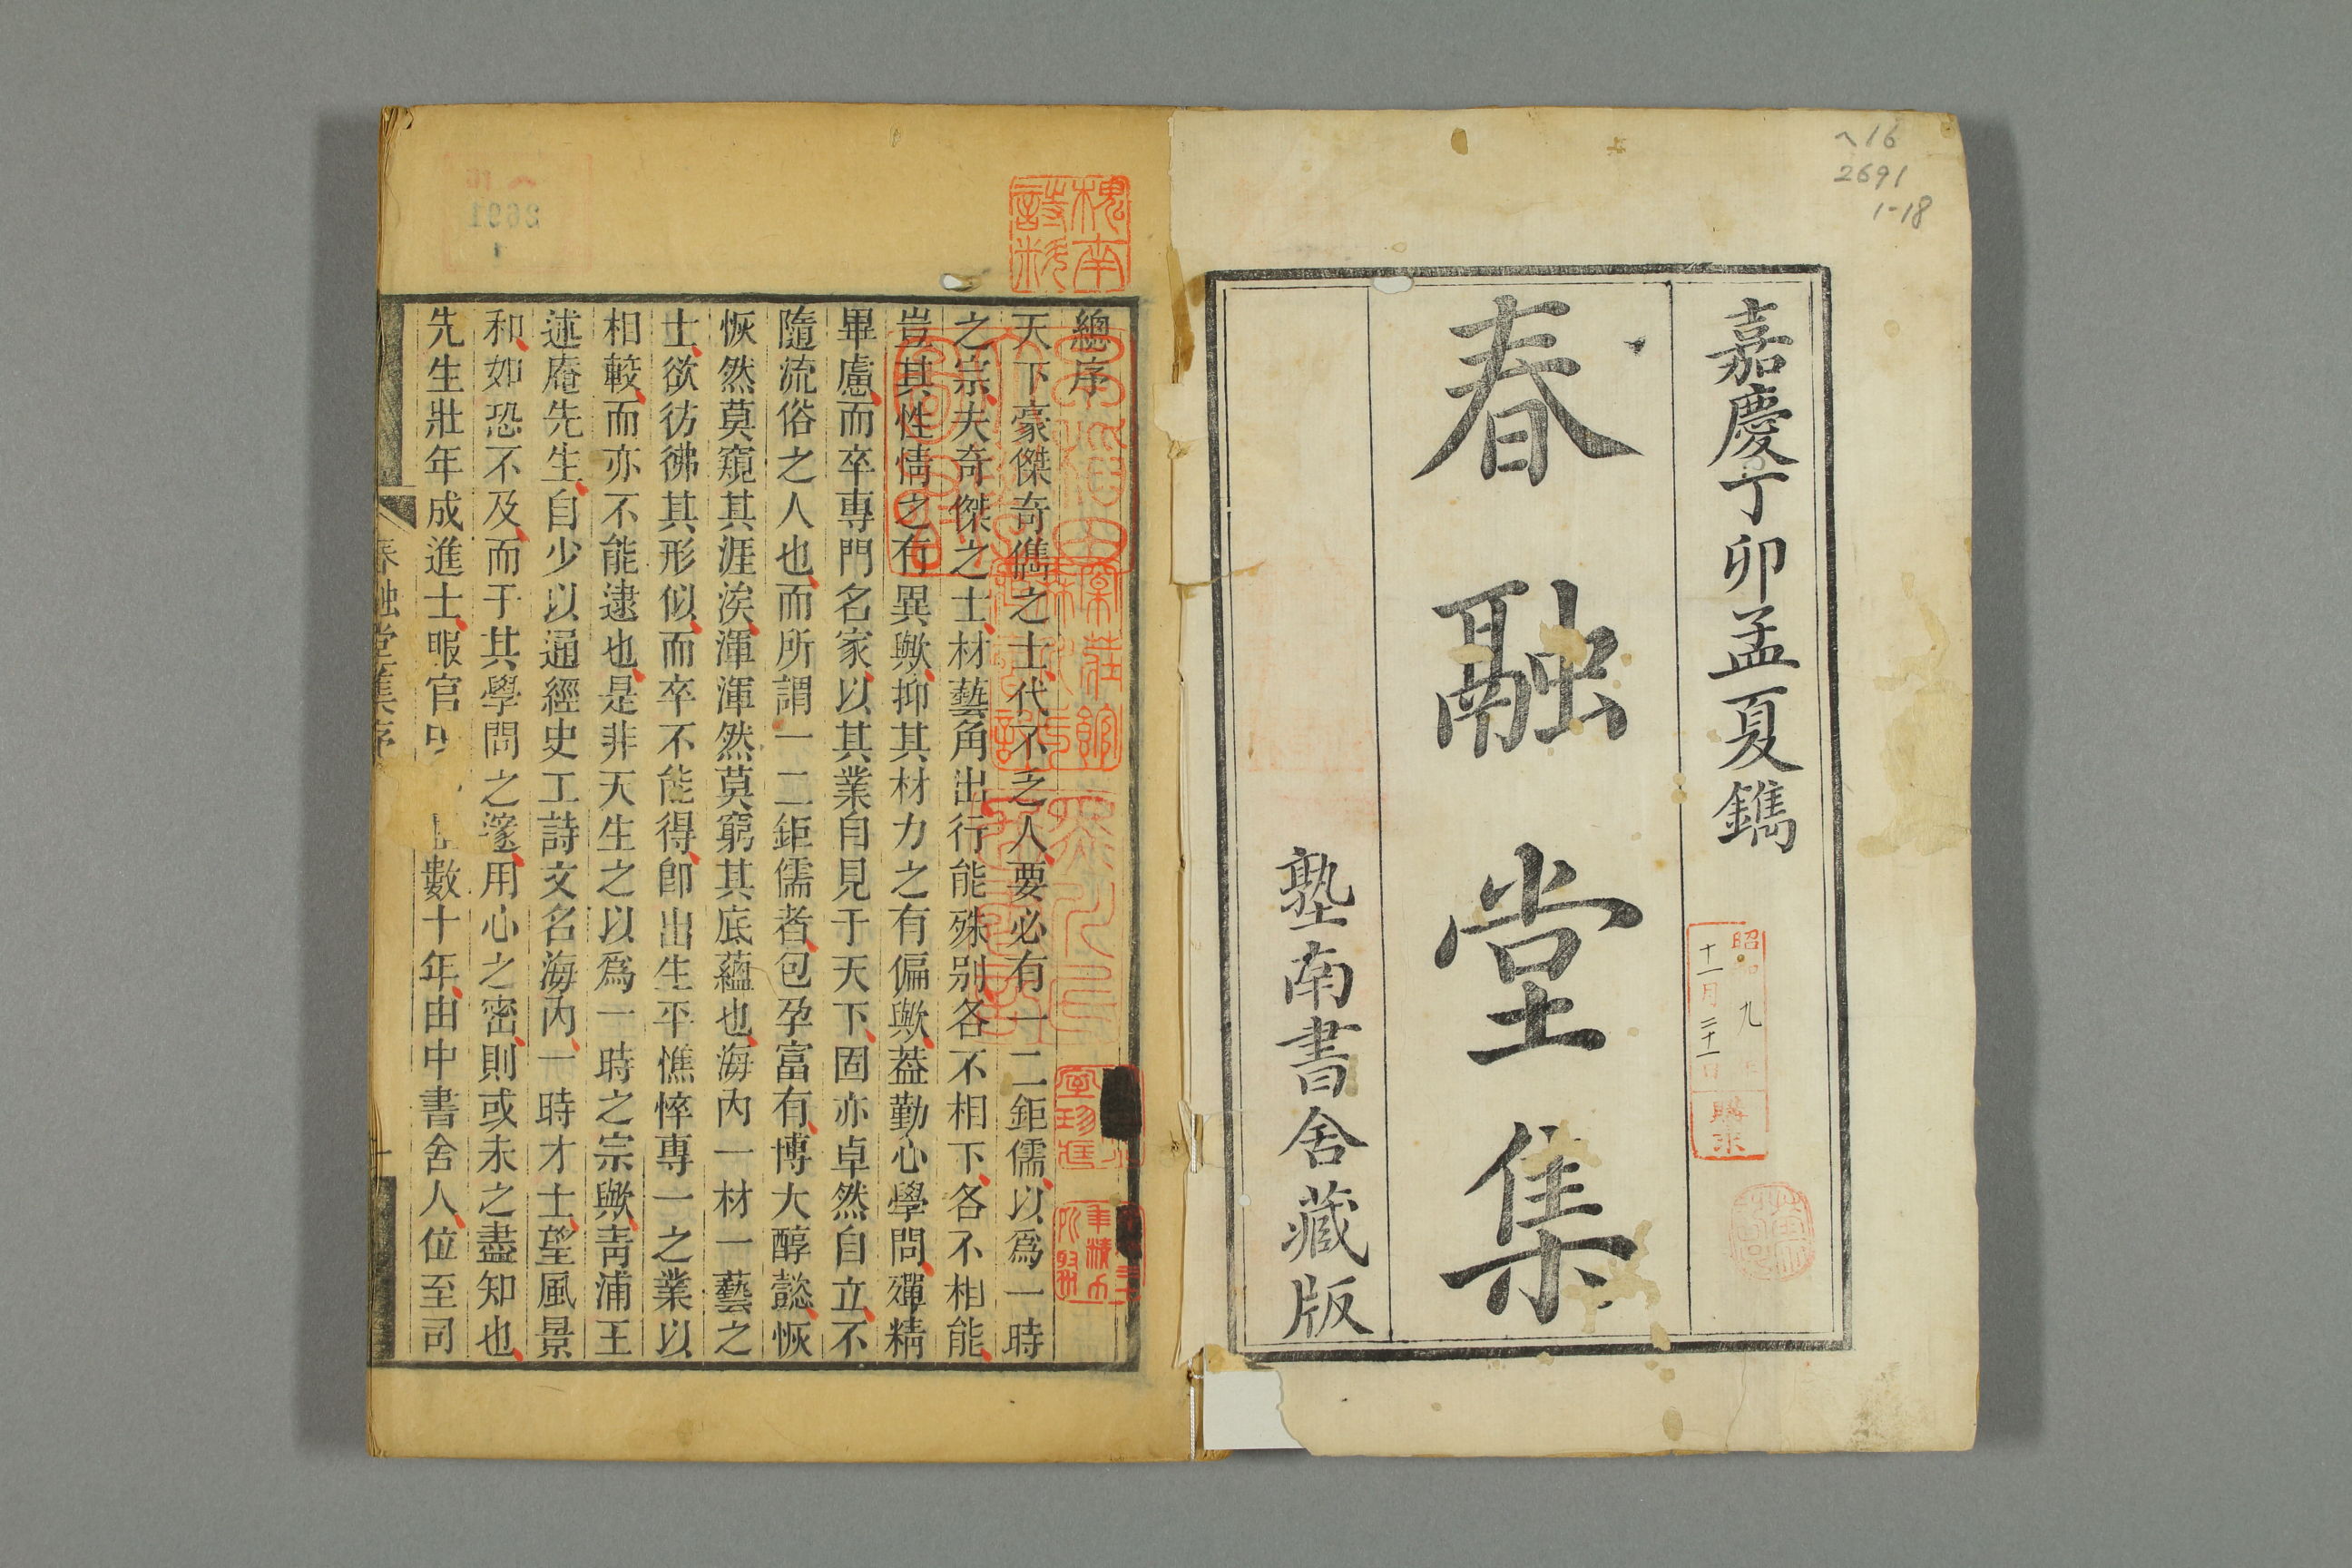 ヘ16
2691
1-18
嘉慶丁卯孟夏鐫
春融堂集
塾南書舍藏版
昭和九年
十一月二十一日
購求
槐南詩料
總序
天下豪傑奇儁之士代不乏人要必有一二鉅儒以爲一時
之宗夫奇傑之士材藝角出行能殊别各不相下各不相能
豈其性情之有異歟抑其材力之有偏歟葢勤心學問殫精
畢慮而卒專門名家以其業自見于天下固亦卓然自立不
隨流俗之人也而所謂一二鉅儒者包孕富有博大醇懿恢
恢然莫窺其涯涘渾渾然莫窮其底蘊也海内一材一藝之
士欲彷彿其形似而卒不能得卽出生平憔悴專一之業以
相較而亦不能逮也是非天生之以爲一時之宗歟靑浦王
述庵先生自少以通經史工詩文名海内一時才士望風景
和如恐不及而于其學問之邃用心之密則或未之盡知也
先生壯年成進士暇官 數十年由中書舍人位至司
春融堂集序
一